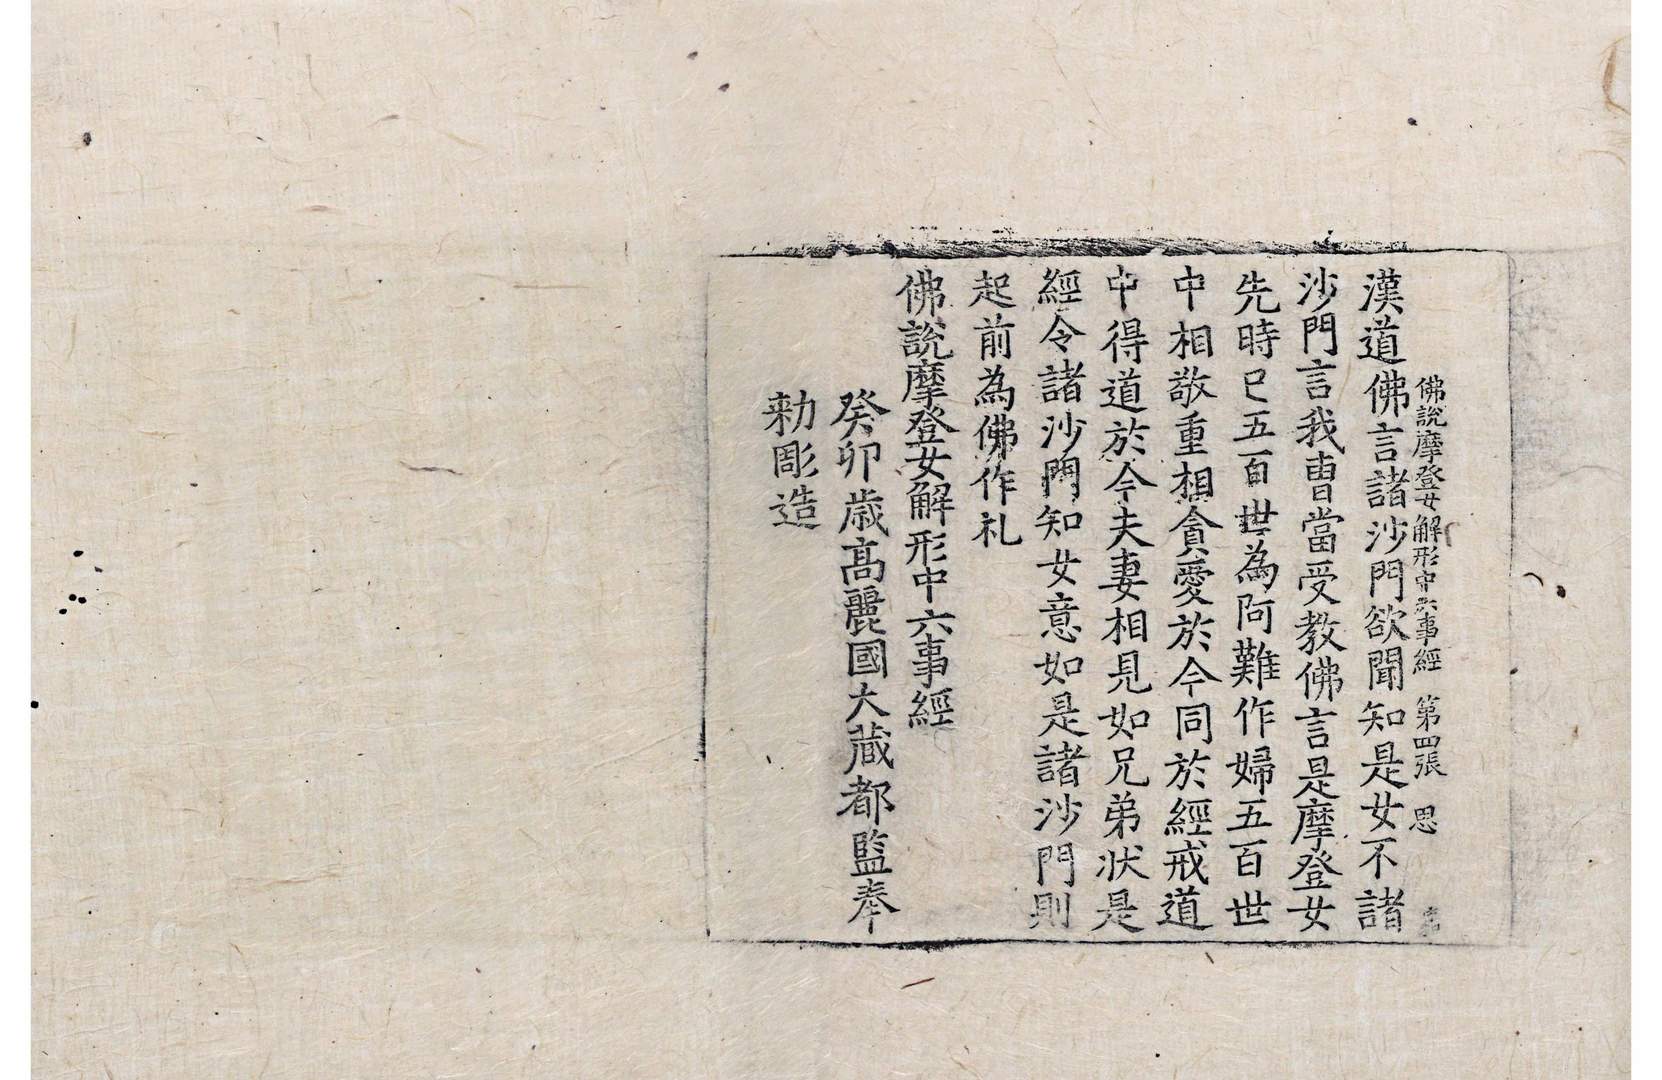 佛說摩登女解形中六事經 第四張 思
漢道佛言諸沙門欲聞知是女不諸
沙門言我曺當受教佛言是摩登女
先時已五百世為阿難作婦五百世
中相敬重相貪愛於今同於經戒道
中得道於今夫妻相見如兄弟狀是
經令諸沙門知女意如是諸沙門則
起前為佛作礼
佛說摩登女解形中六事經
癸卯歳高麗國大藏都監奉
勑彫造